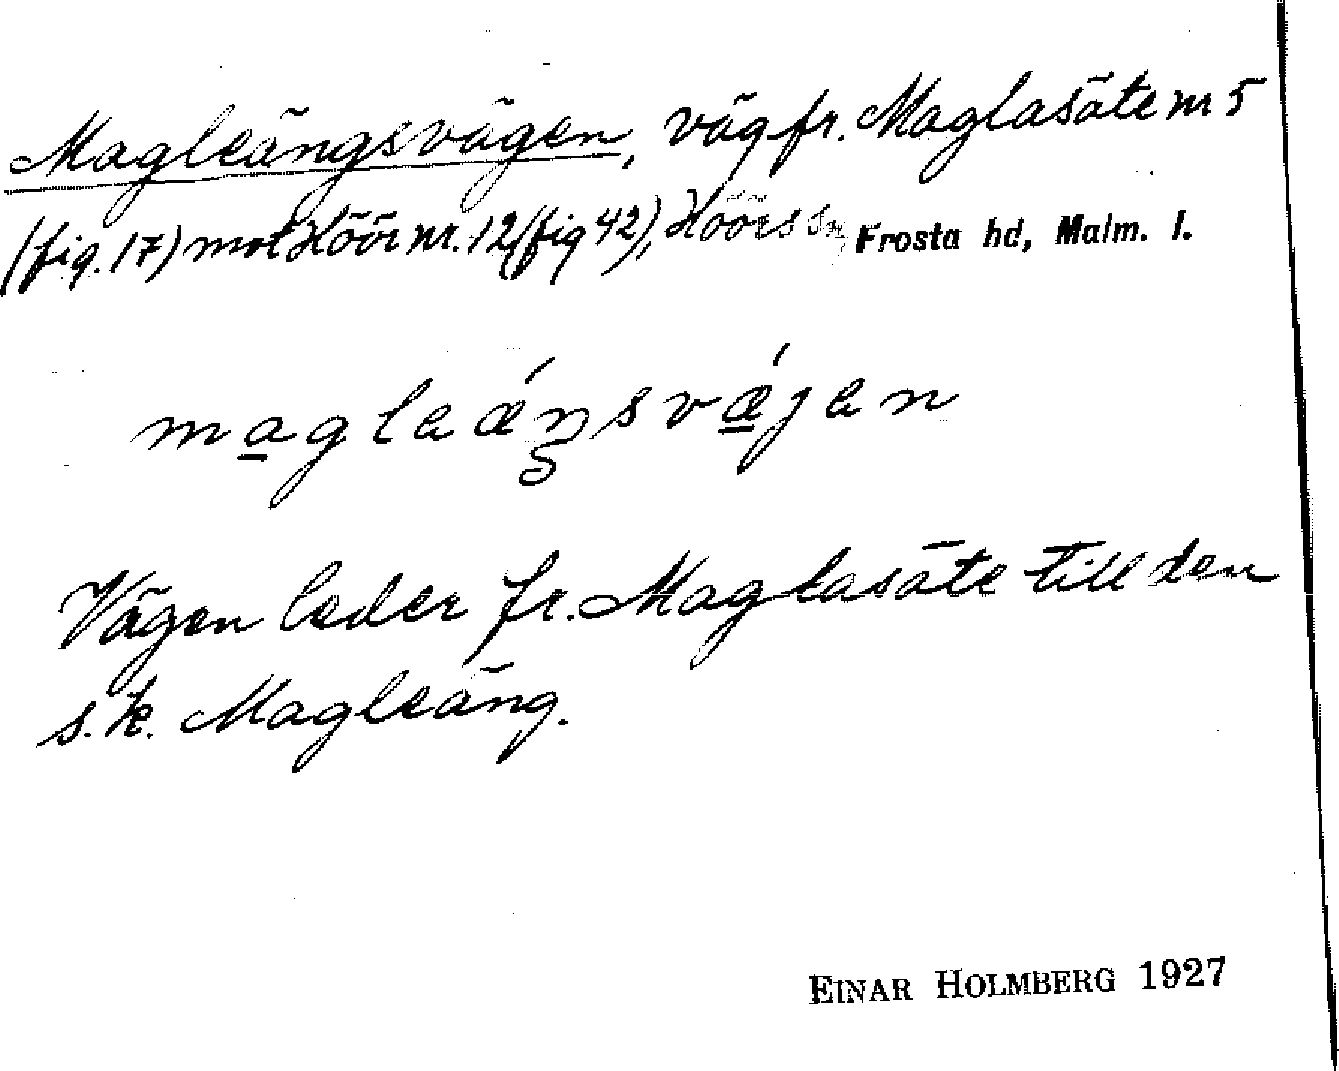 Magleängsvägen, väg fr. Maglasäte nr 5
(fig. 17) mot Höör nr. 12 (fig 42), Höörs sn, Frosta hd, Malm. l.
magleæ´ŋsvæ´jen
Vägen leder fr. Maglasäte till den
s.k. Magleäng.
EINAR HOLMBERG 1927